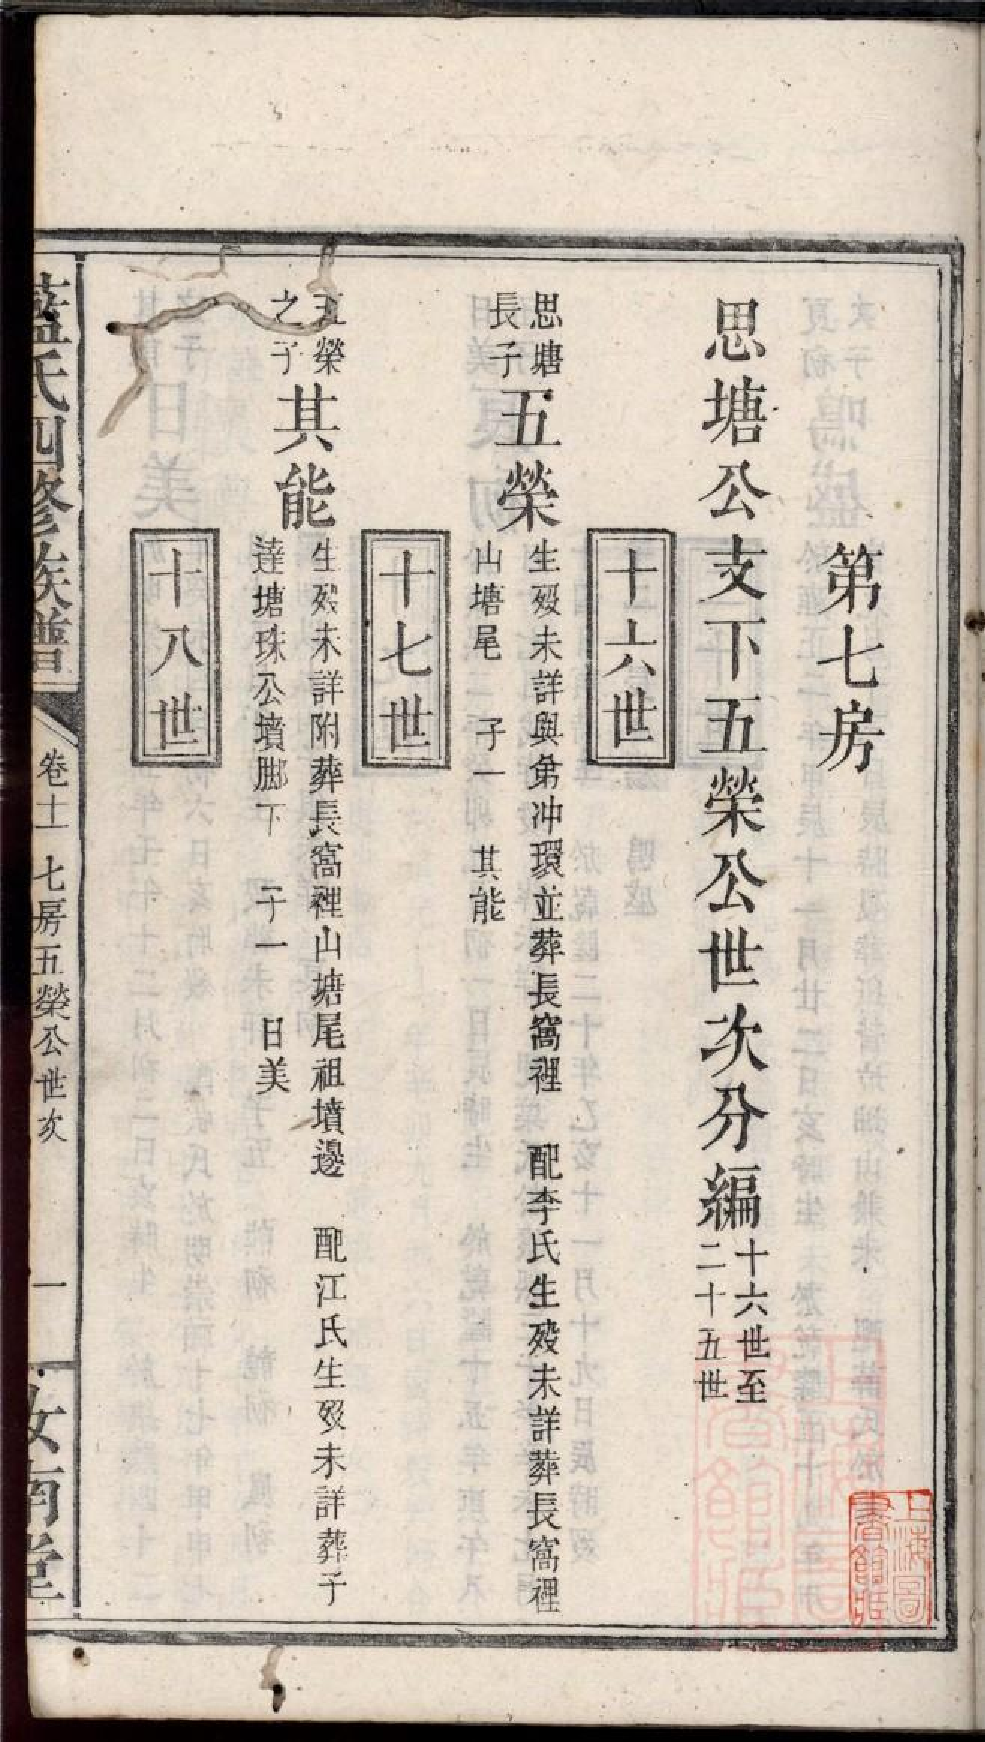 第七房
思塘公支下五榮公世次分編十六世至
二十五世
十六世
思塘
長子
五榮
生歿未詳與弟冲環並葬長窩裡 配李氏生歿未詳葬長窩裡
山塘尾 子一 其能
十七世
五榮
之子
其能
生歿未詳附葬長窩裡山塘尾祖墳邊 配江氏生歿未詳葬于
達塘珠公墳脚下 子一 日美
十八世
藍氏四修族譜
卷十一 七房五榮公世次
一
汝南堂
上海圖
書館藏